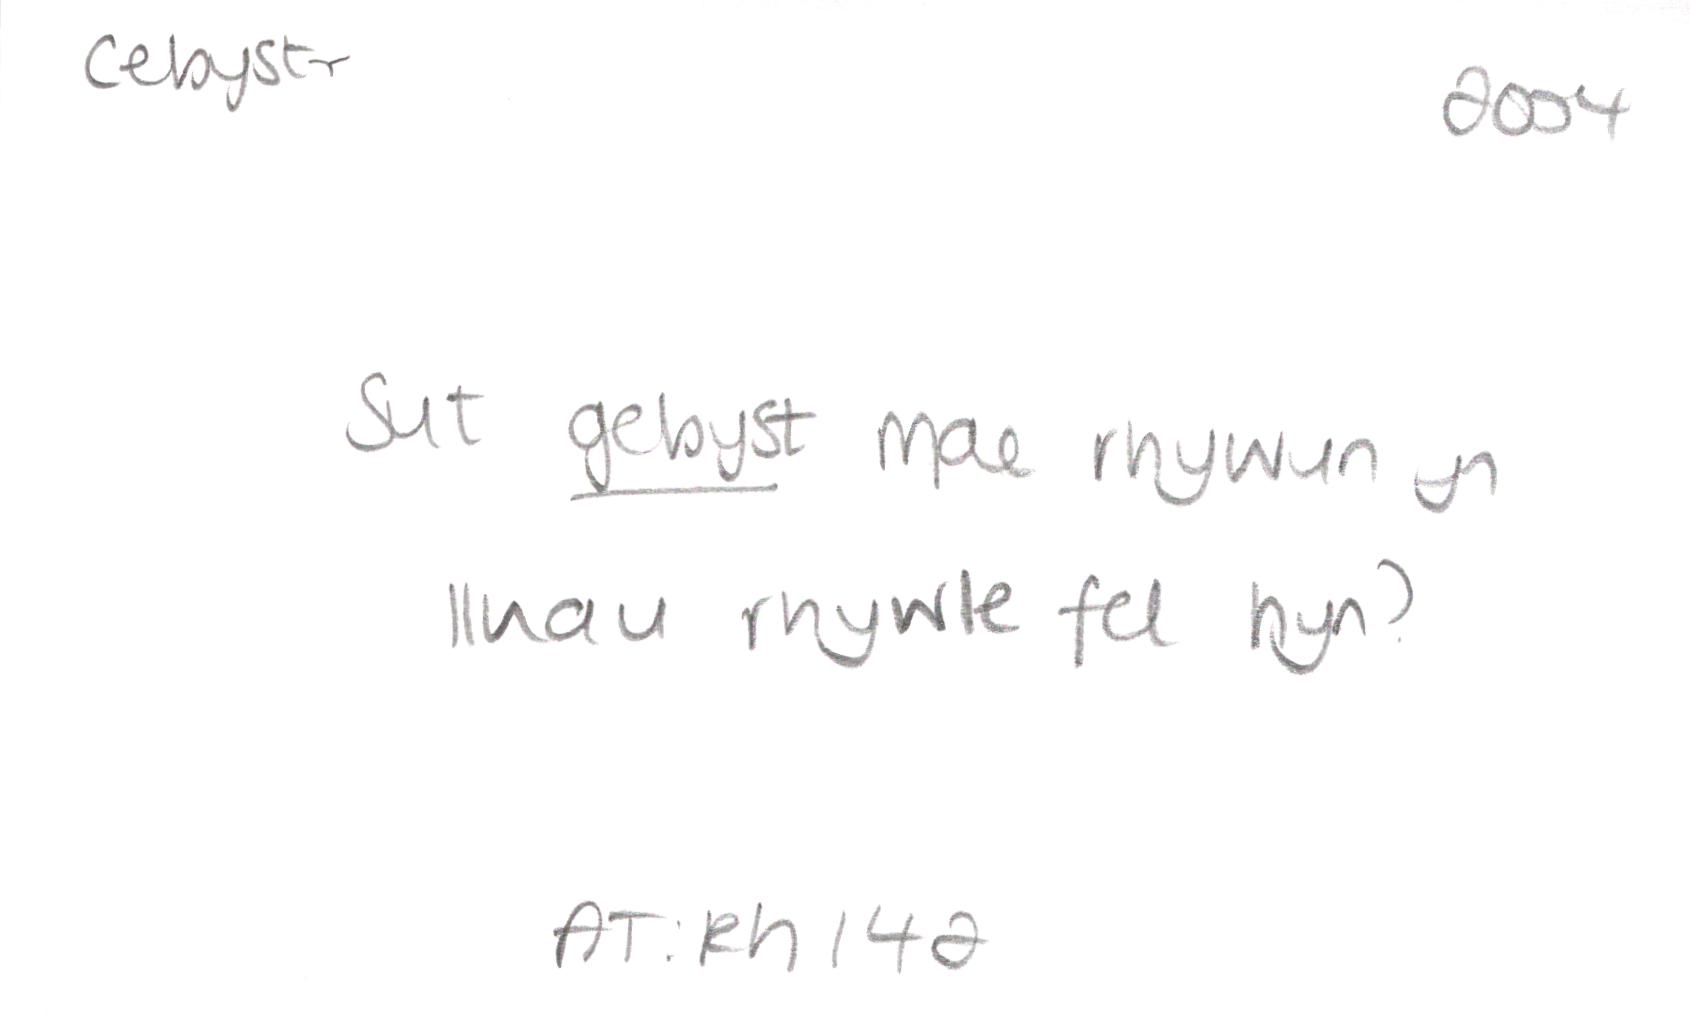 Cebystr
2004
Sut gebyst mae rhywun yn
llnau rhywle fel hyn?
AT:Rh 142